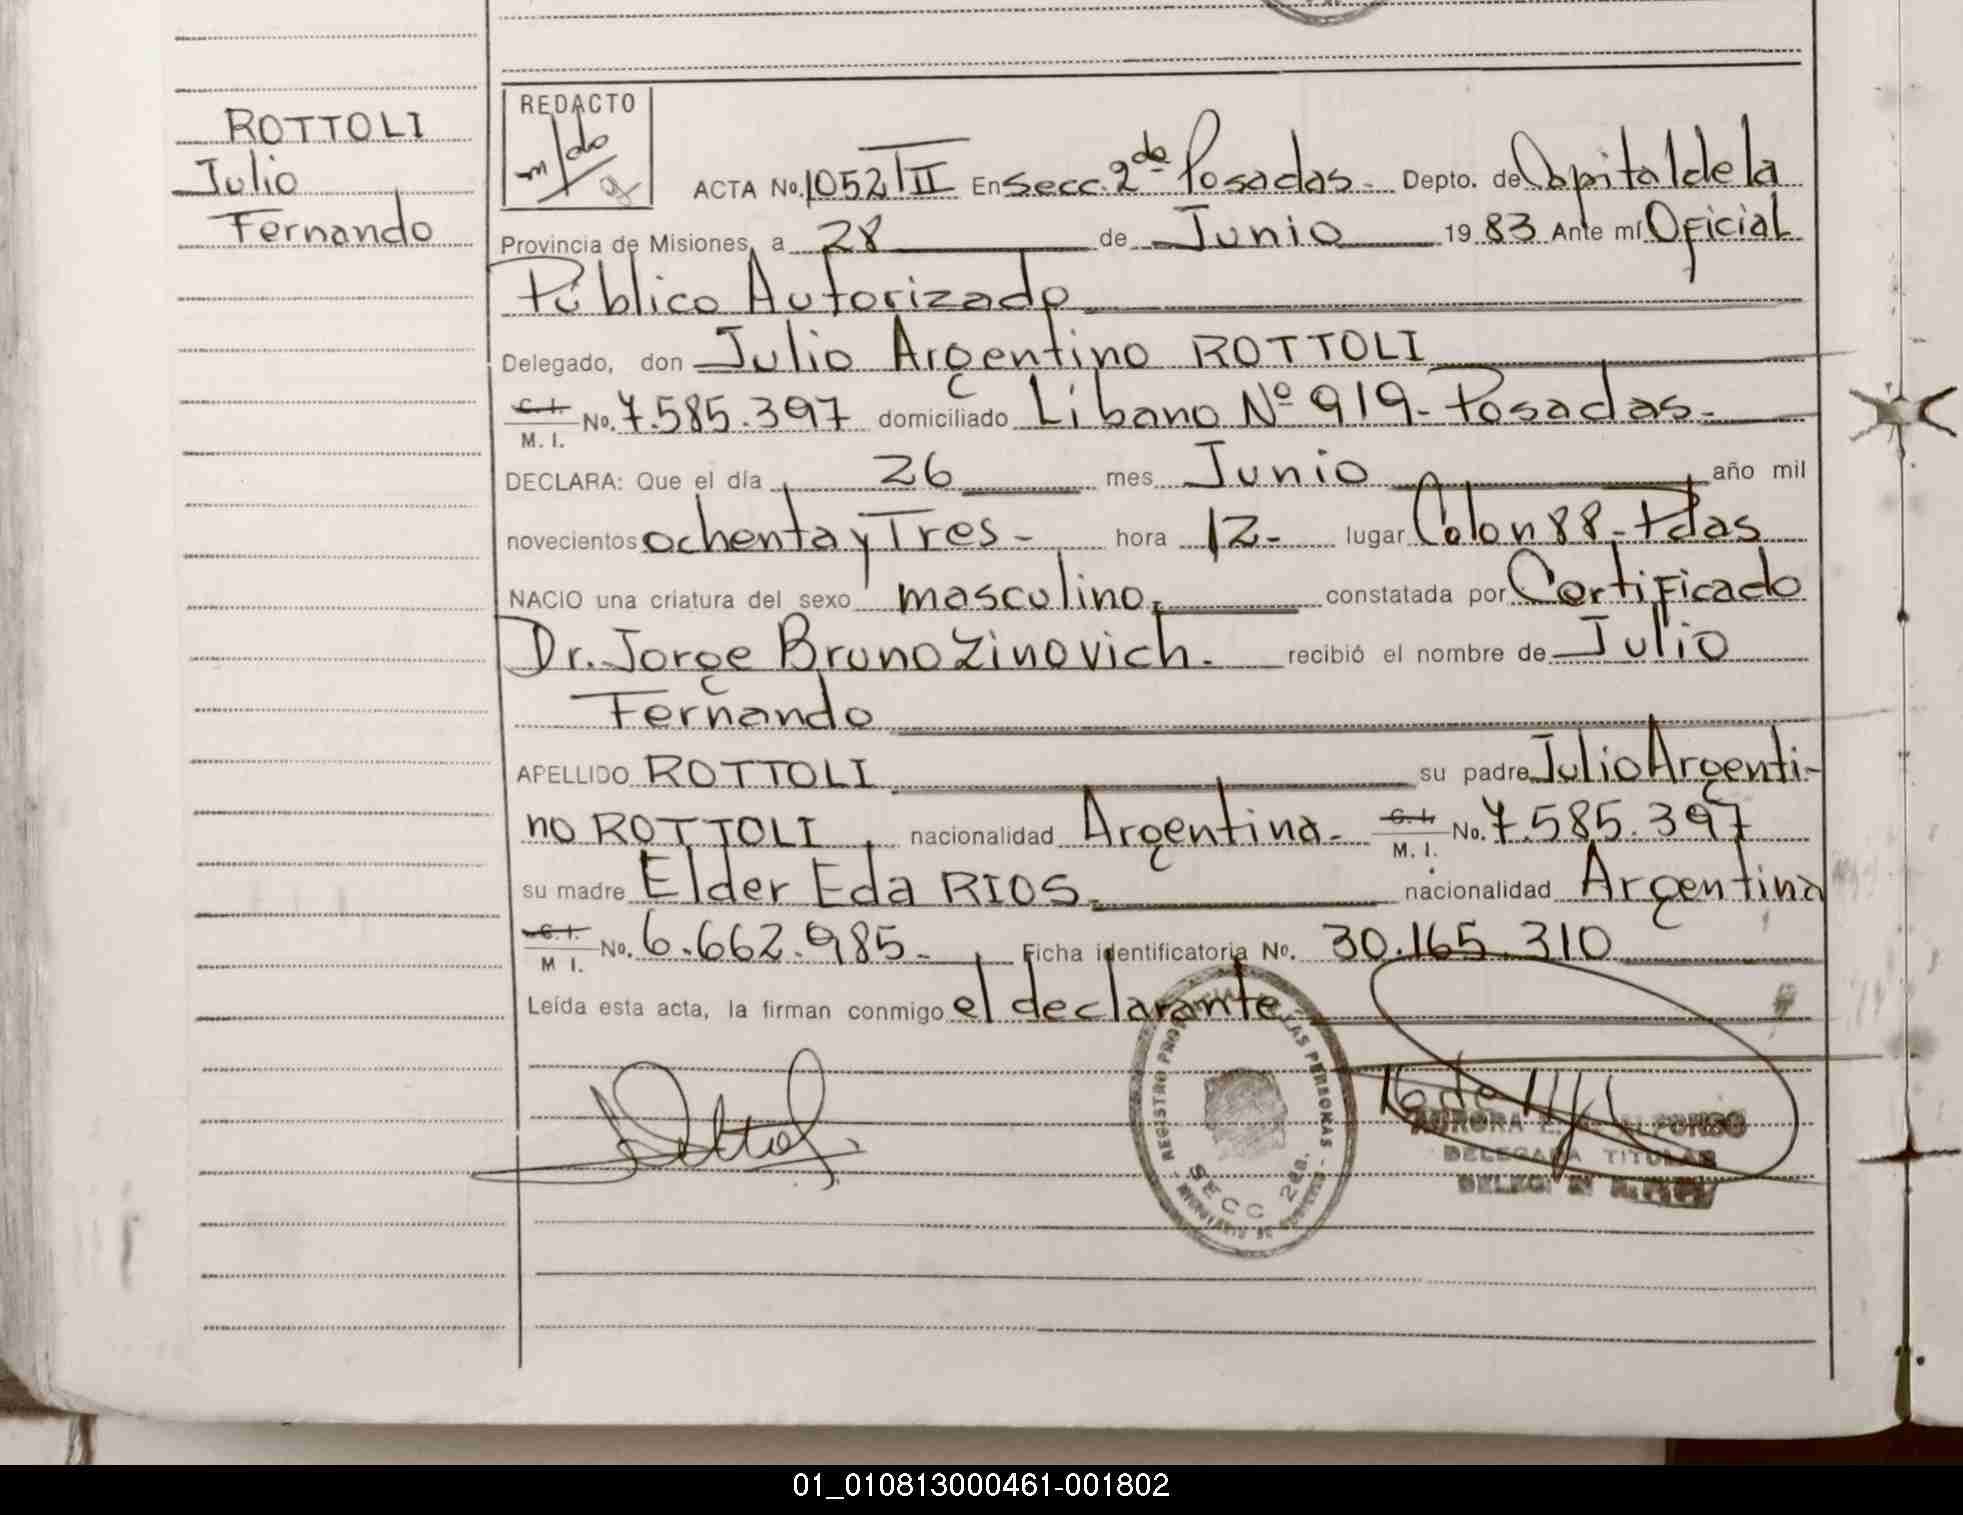 ROTTOLI
Julio
Fernando
REDACTO
ACTA No. 1052 TII En Secc. 2da Posadas. Depto. de Capital de la
Provincia de Misiones, a 28 de Junio 1983 Ante mí Oficial
Público Autorizado
Delegado, don Julio Argentino ROTTOLI
C. I.
M. I. No. 7.585.397 domiciliado Líbano Nº 919- Posadas.-
DECLARA: Que el día 26 mes Junio año mil
novecientos ochenta y Tres- hora 12- lugar Colon 88- Pdas
NACIO una criatura del sexo masculino, constatada por Certificado
Dr. Jorge Bruno Zinovich. recibió el nombre de Julio
Fernando
APELLIDO ROTTOLI su padre Julio Argenti-
no ROTTOLI, nacionalidad Argentina- C. I.
M. I. No. 7.585.397
su madre Elder Eda RIOS. nacionalidad Argentina
C. I.
M I. No. 6.662.985- Ficha identificatoria No. 30.165.310
Leída esta acta, la firman conmigo el declarante
REGISTRO DE LAS PERSONAS
SECC 2da.
AURORA ALFONSO
DELEGADA TITULAR
01_010813000461-001802